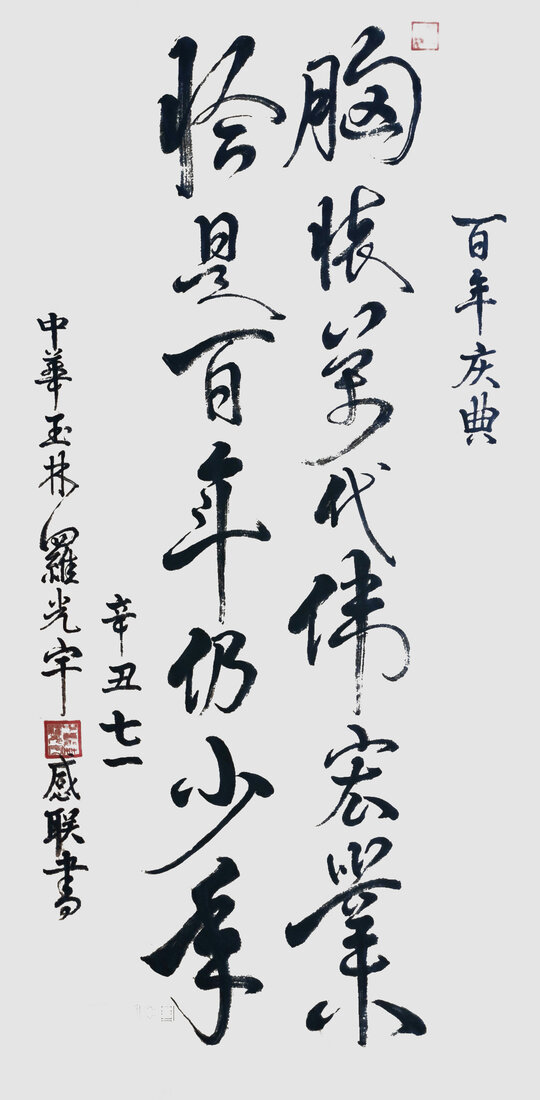 百年庆典
胸懷萬代偉宏業
恰是百年仍少年
辛丑七一
中華玉林羅光宇感联書